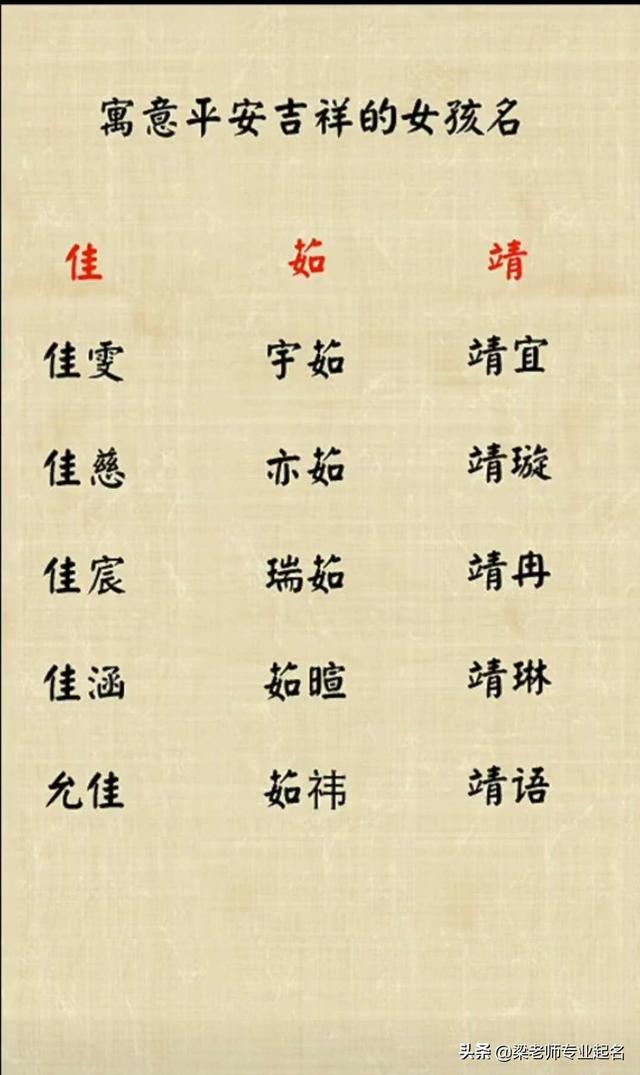 寓意平安吉祥的女孩名
佳 茹 靖
佳雯 宇茹 靖宜
佳慈 亦茹 靖璇
佳宸 瑞茹 靖冉
佳涵 茹暄 靖琳
允佳 茹祎 靖语
头条 @梁老师专业起名